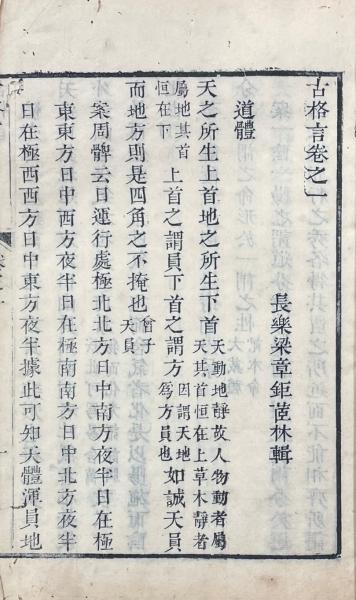 古格言卷之一
長樂梁章鉅茝林輯
道體
天之所生上首地之所生下首天動地靜故人物動者屬天其首恒在上草木靜者
屬地其首恒在下上首之謂員下首之謂方因謂天地為方員也如誠天員
而地方則是四角之不掩也曾子天員
案周髀云日運行處極北北方日中南方夜半日在極
東東方日中西方夜半日在極南南方日中北方夜半
日在極西西方日中東方夜半據此可知天體渾員地